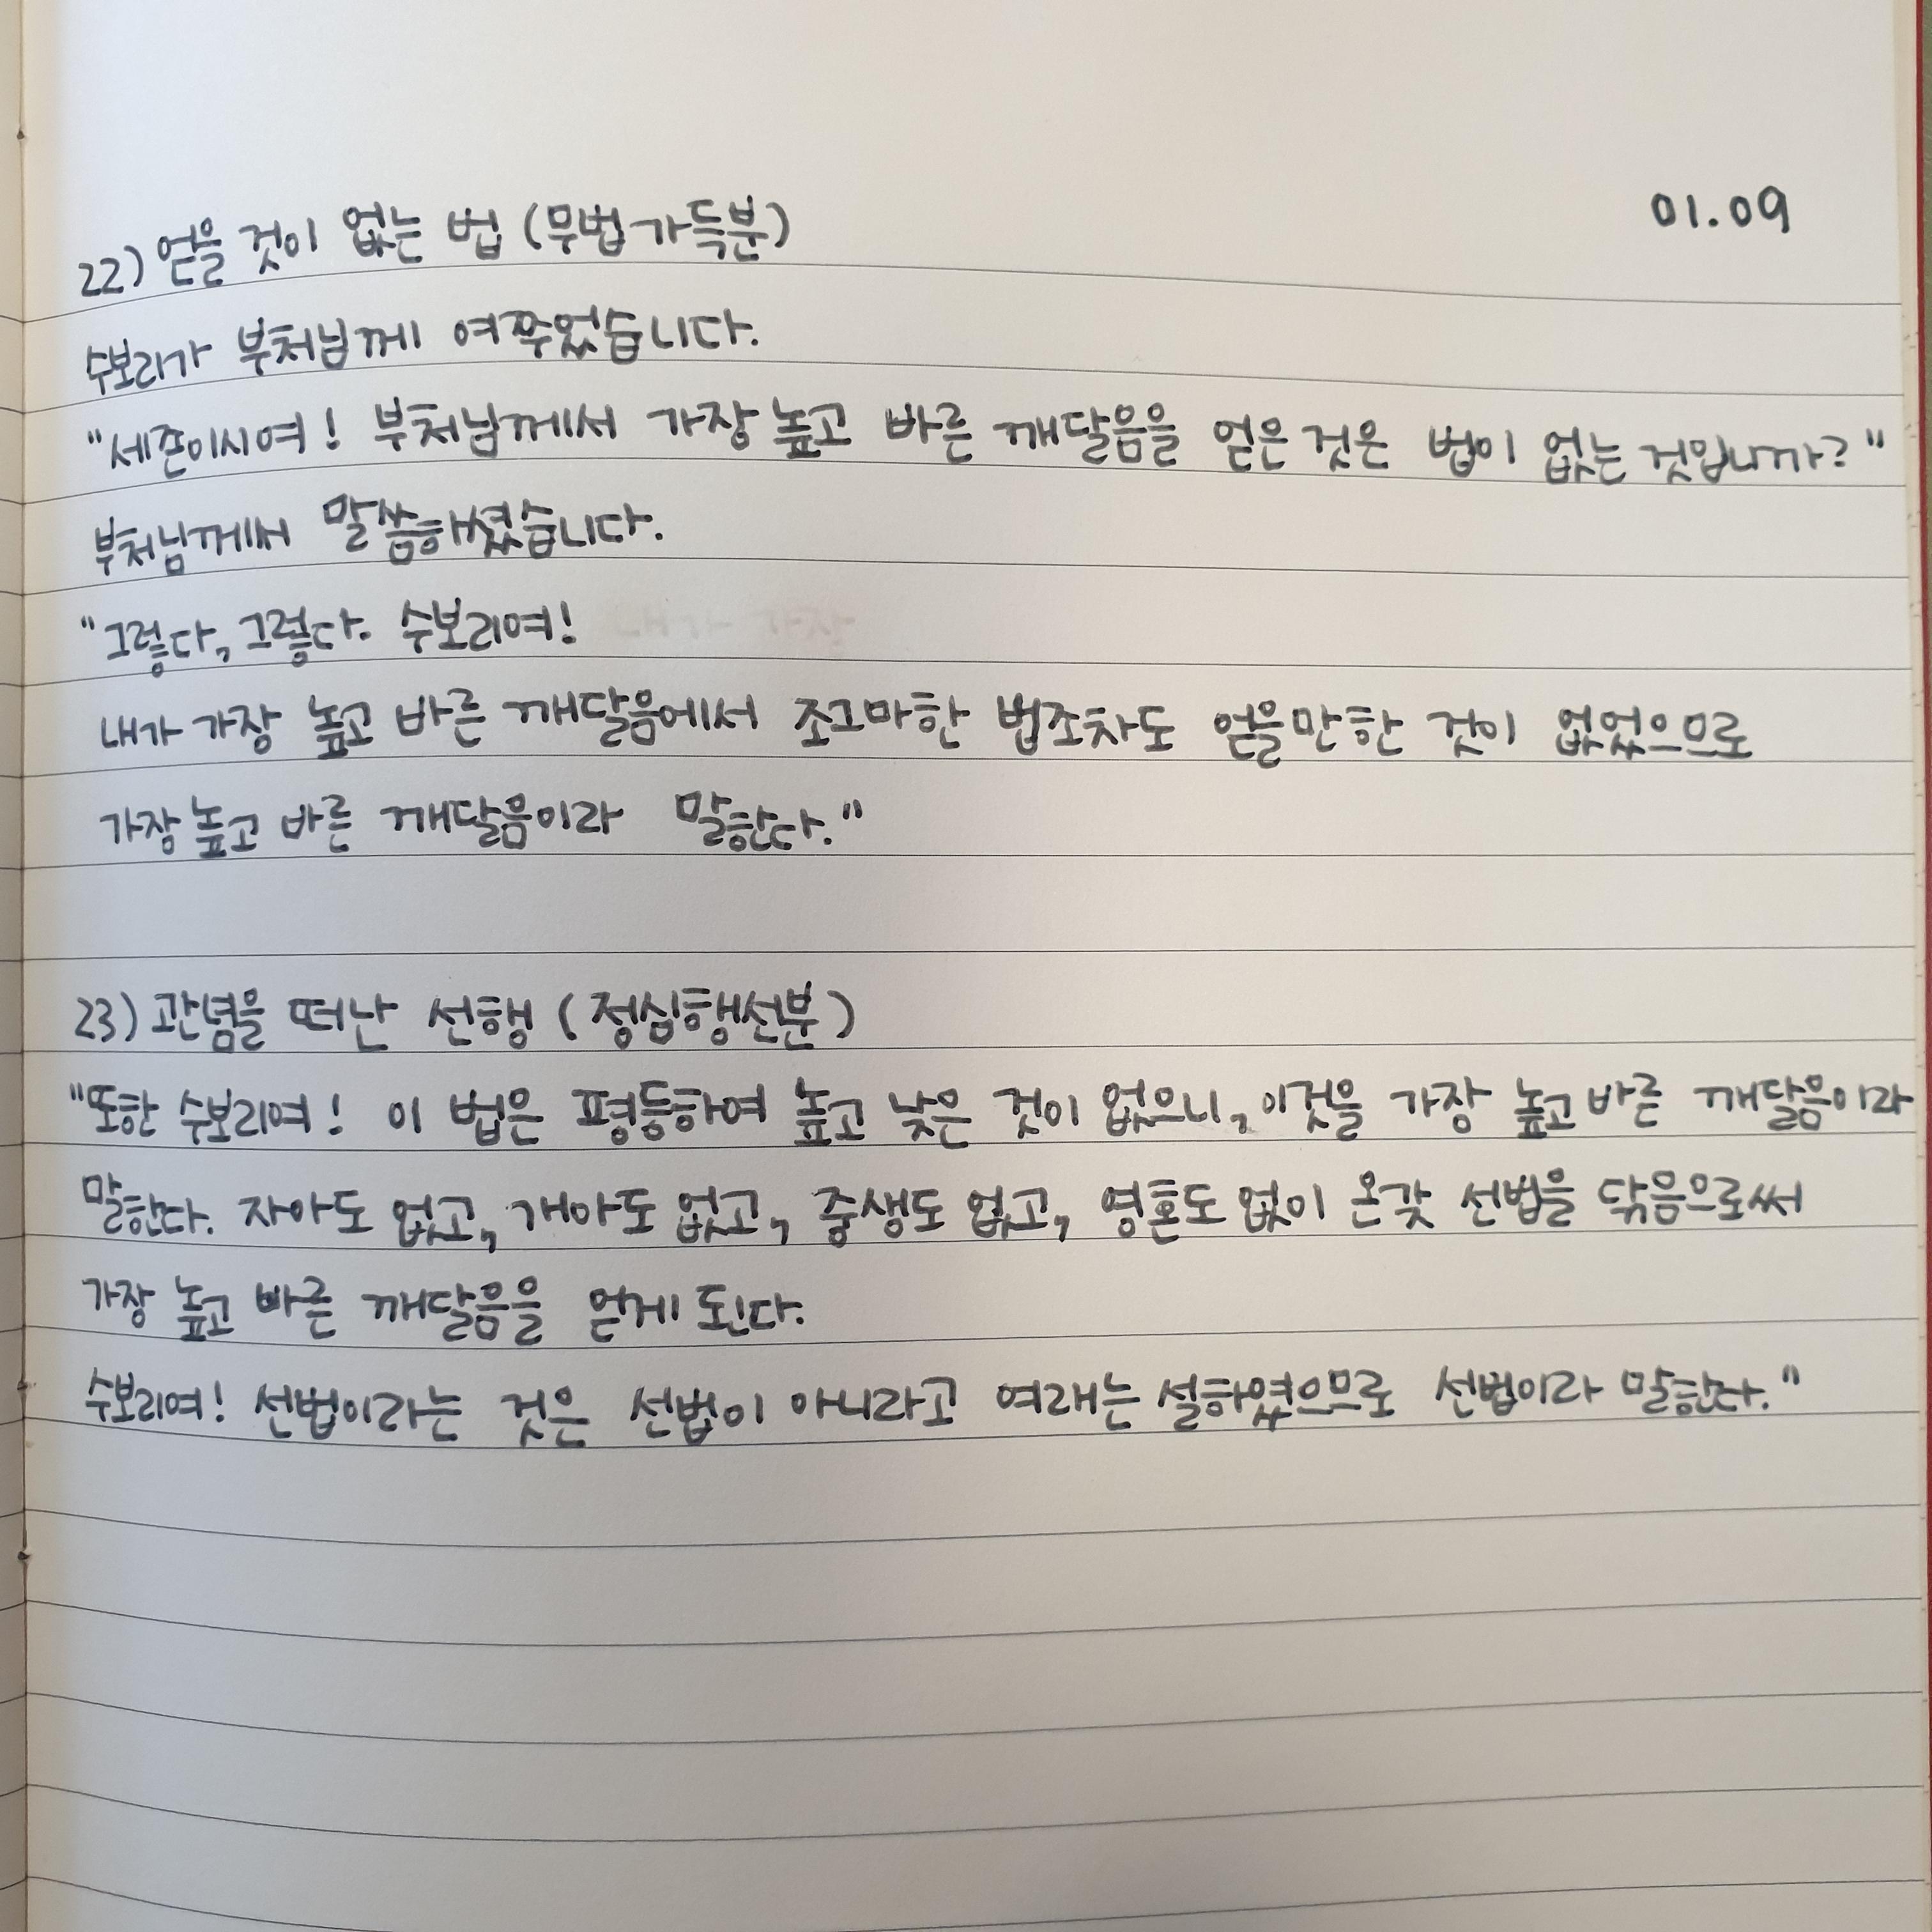 01.09
22) 얻을 것이 없는 법 (무법가득분)
수보리가 부처님께 여쭈었습니다.
"세존이시여! 부처님께서 가장 높고 바른 깨달음을 얻은 것은 법이 없는 것입니까?"
부처님께서 말씀하셨습니다.
"그렇다, 그렇다. 수보리여!
내가 가장 높고 바른 깨달음에서 조그마한 법조차도 얻을만한 것이 없었으므로
가장 높고 바른 깨달음이라 말한다."
23) 관념을 떠난 선행 (정심행선분)
"또한 수보리여! 이 법은 평등하여 높고 낮은 것이 없으니, 이것을 가장 높고 바른 깨달음이라
말한다. 자아도 없고, 개아도 없고, 중생도 없고, 영혼도 없이 온갖 선법을 닦음으로써
가장 높고 바른 깨달음을 얻게 된다.
수보리여! 선법이라는 것은 선법이 아니라고 여래는 설하였으므로 선법이라 말한다."